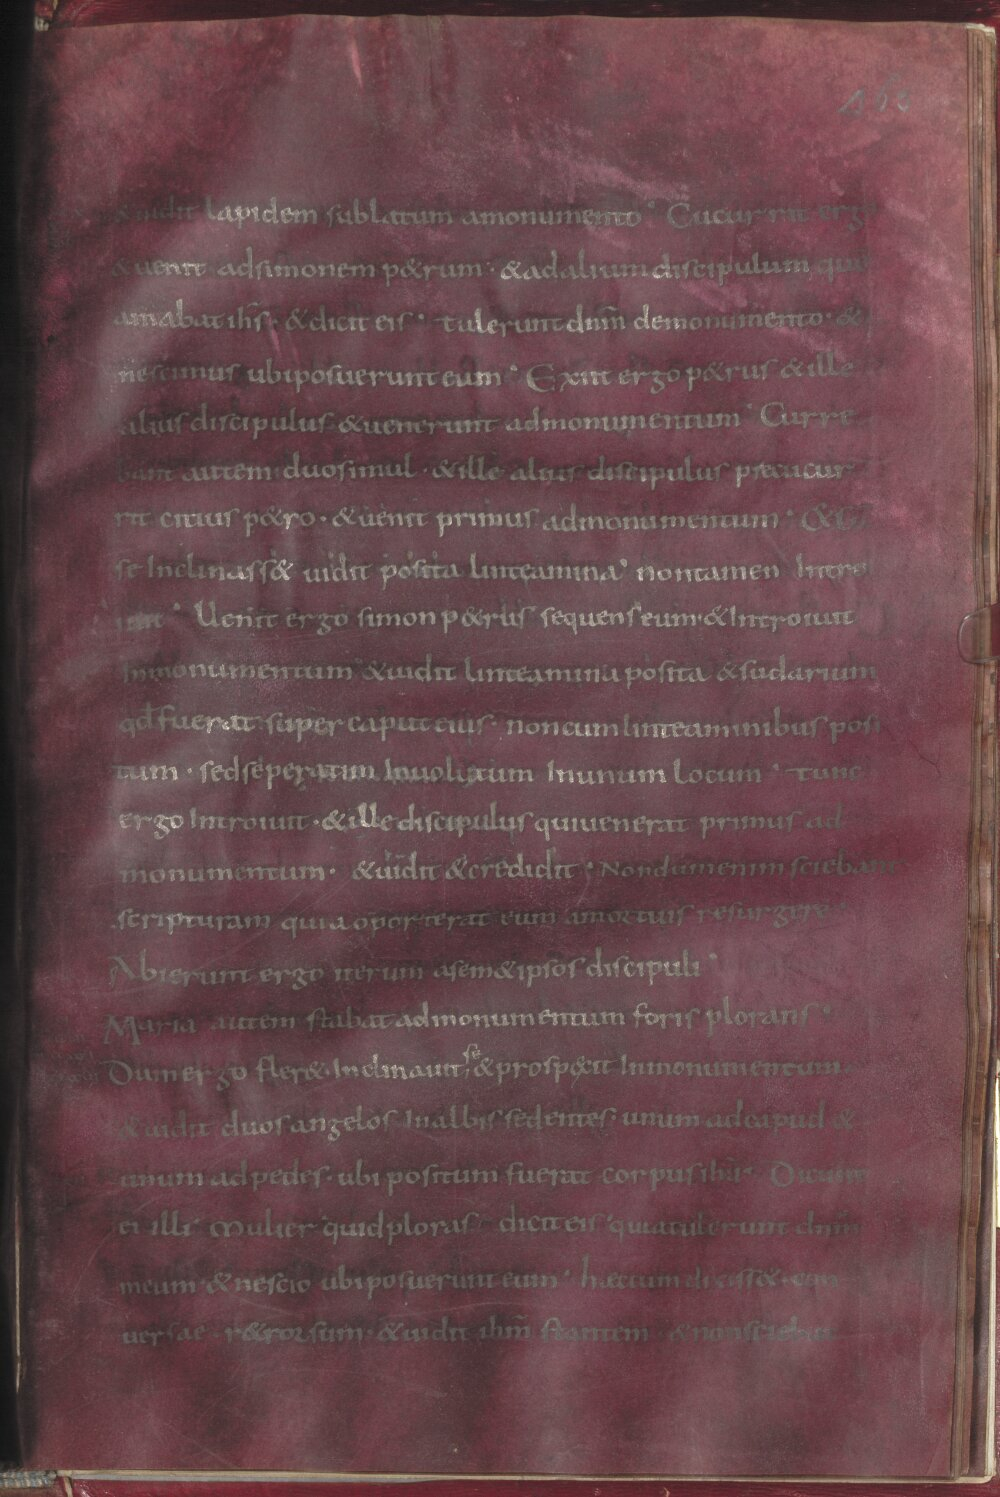 & uidit lapidem sublatum amonumento· Cucurrit ergo
& uenit adsimonem p&rum· &adalium discipulum que
amabat ihs· &dicit eis· tulerunt dnm demonumento· &
nescimus ubiposuerunt eum· Exiit ergo p&rus &ille
alius discipulus &uenerunt admonumentum· Curre
bant autem duosimul· &ille alius discipulus precucur
rit citius p&ro· &uenit primus admonumentum·
se Inclinass& uidit posita linteamina· nontamen Intro
iuit· Uenit ergo simon p&rus sequens eum &Introiuit
Inmonumentum &uidit linteamina posita &sudarium
qd fuerat super caput eius· noncum linteaminibus posi
tum· sedseperatim Inuolutum Inunum locum· Tunc
ergo Introiuit· &ille discipulus quiuenerat primus ad
monumentum· &uidit &credidit· Nondumenim sciebant
scripturam quia oporterat eum amortuis resurgere·
Abierunt ergo iterum asem&ipsos discipuli·
Maria autem stabat admonumentum foris plorans·
Dumergo fler& Inclinauit se &prosp&it Inmonumentum·
&uidit duos angelos Inalbis sedentes· unum adcapud &
unum adpedes· ubi positum fuerat corpus ihu· Dicunt
ei illi mulier quidploras dicit eis quiatulerunt dnm
meum &nescio ubiposuerunt eum· haeccum dixiss&· con
uersae r&rorsum· &uidit ihm stantem· &nonsciebat